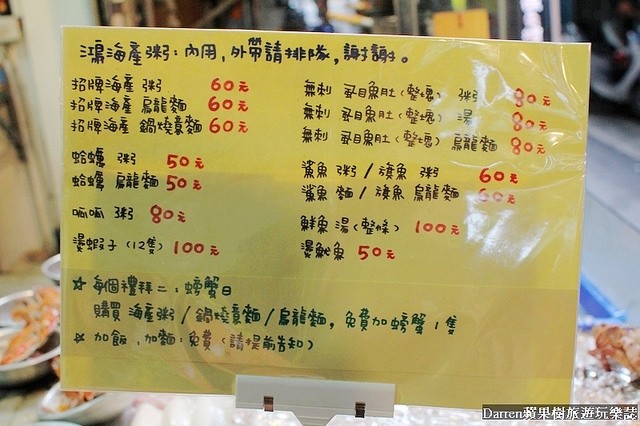 鴻海產粥：內用，外帶請排隊，謝謝。
招牌海產 粥 60元
招牌海產 烏龍麵 60元
招牌海產 鍋燒意麵 60元
蛤蠣 粥 50元
蛤蠣 烏龍麵 50元
呱呱 粥 80元
燙蝦子（12隻）100元
無刺 虱目魚肚（整塊） 粥 80元
無刺 虱目魚肚（整塊） 湯 80元
無刺 虱目魚肚（整塊） 烏龍麵 80元
鯊魚 粥 / 旗魚 粥 60元
鯊魚 麵 / 旗魚 烏龍麵 60元
鮮魚 湯（整條） 100元
燙魷魚 50元
☆ 每個禮拜二：螃蟹日
購買 海產粥 / 鍋燒意麵 / 烏龍麵，免費加螃蟹1隻
☆ 加飯，加麵：免費（請提前告知）
Darren蘋果樹旅遊玩樂誌